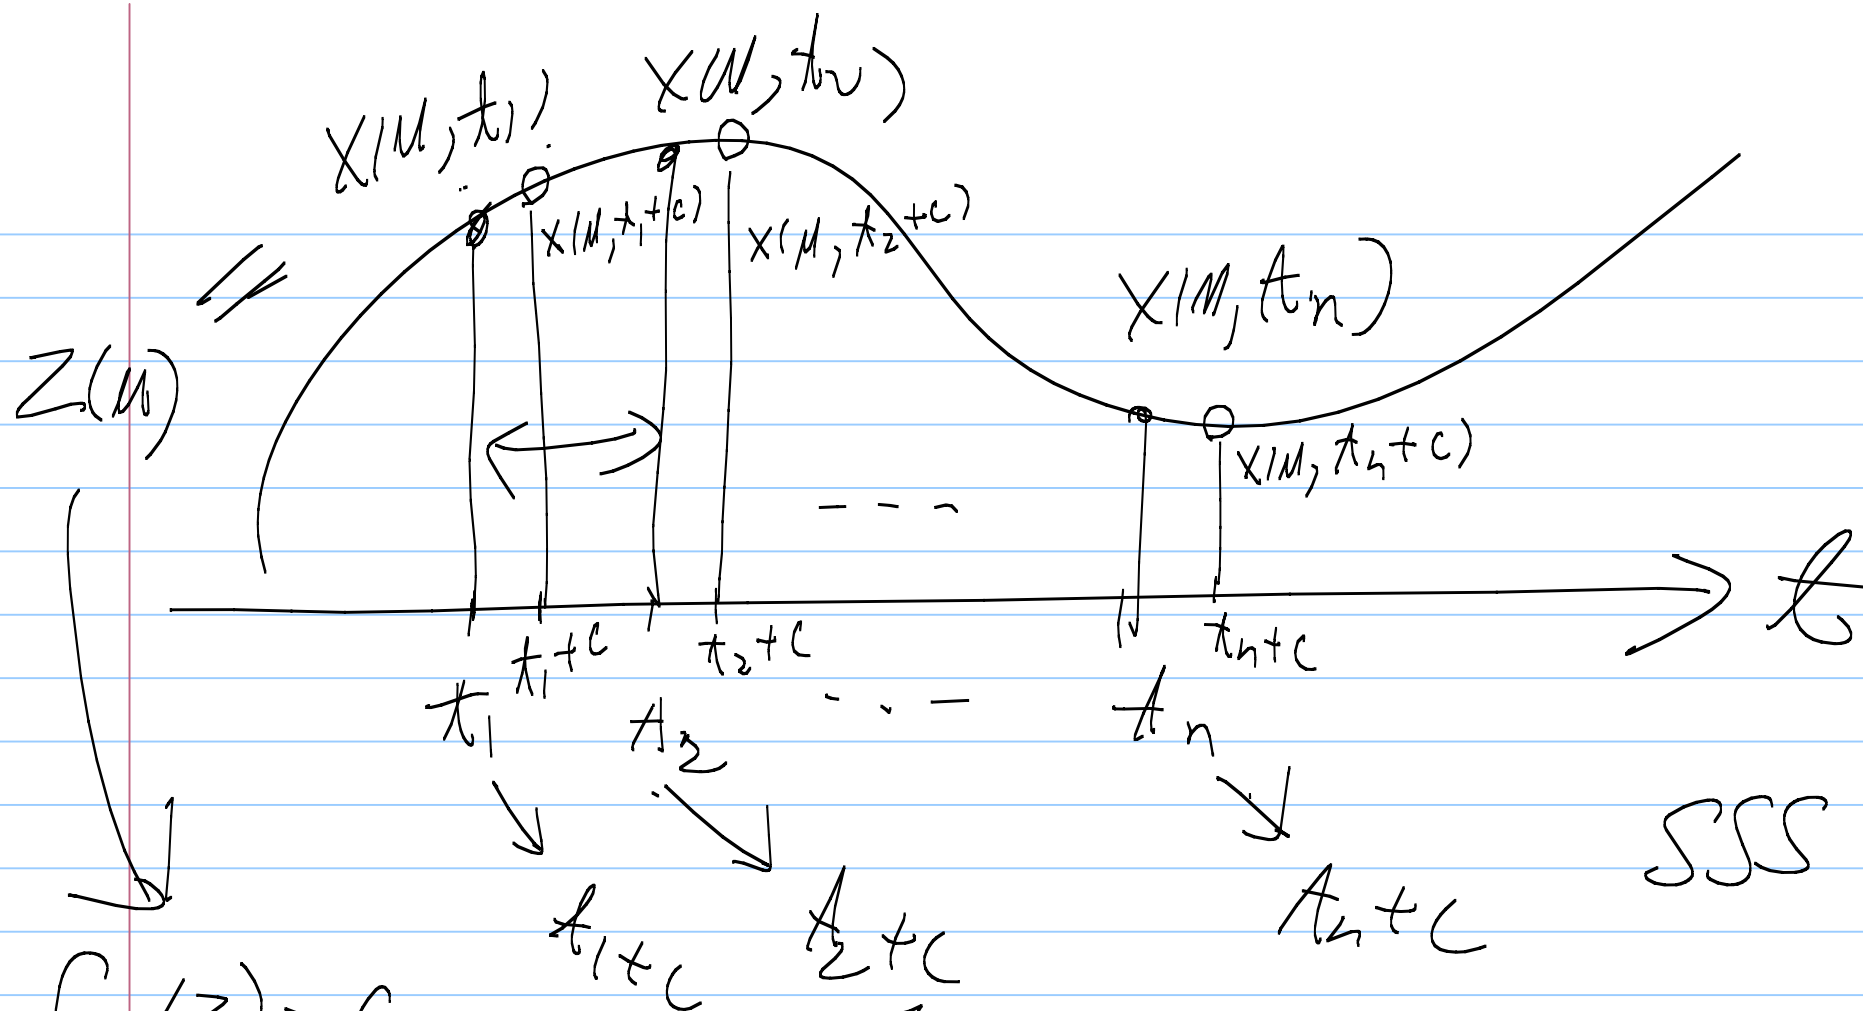 X(μ, t₁)
X(μ, t₂)
X(μ, t₁+c)
X(μ, t₂+c)
X(μ, tₙ)
Z(μ)
X(μ, tₙ+c)
- - -
t
t₁+c
t₂+c
tₙ+c
t₁
t₂
tₙ
SSS
t₁+c
t₂+c
tₙ+c